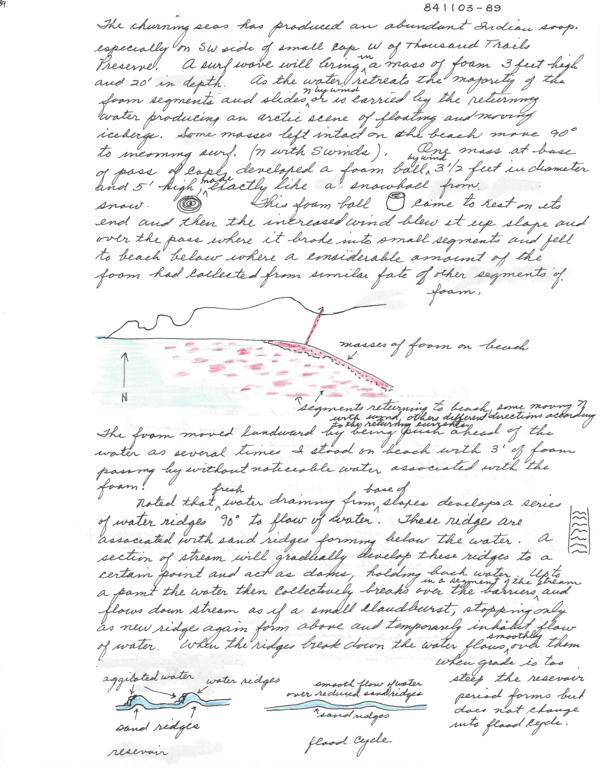 841103-89
The churning seas has produced an abundant Indian soap.
especially on SW side of small cap W of Thousand Trails
Preserve. A surf wave will bring in a mass of foam 3 feet high
and 20' in depth. As the water retreats the majority of the
foam segments and slides N by wind or is carried by the returning
water producing an arctic scene of floating and moving
icebergs. Some masses left intact on the beach move 90°
to incoming surf. (N with S winds). One mass at base
of pass of cape, developed a foam ball by wind 3 1/2 feet in diameter
and 5' high, made exactly like a snowball from
snow. This foam ball came to rest on its
end and then the increased wind blew it up slope and
over the pass where it broke into small segments and fell
to beach below where a considerable amount of the
foam had collected from similar fate of other segments of
foam.
masses of foam on beach
N
segments returning to beach, some moving N
with wind, others different directions according
to the returning currents
The foam moved landward by being push ahead of the
water as several times I stood on beach with 3' of foam
passing by without noticeable water associated with the
foam!
Noted that fresh water draining from base of slopes develops a series
of water ridges 90° to flow of water. These ridges are
associated with sand ridges forming below the water. A
section of stream will gradually develop these ridges to a
certain point and act as dams, holding back water. Up to
a point the water then collectively breaks over the barriers in a segment of the stream and
flows down stream as if a small cloudburst, stopping only
as new ridge again form above and temporarily inhibit flow
of water. When the ridges break down the water flows smoothly over them
when grade is too
steep the reservoir
period forms but
does not change
into flood cycle.
aggitated water water ridges
sand ridges
reservoir
smooth flow of water
over reduced sand ridges
sand ridges
flood cycle